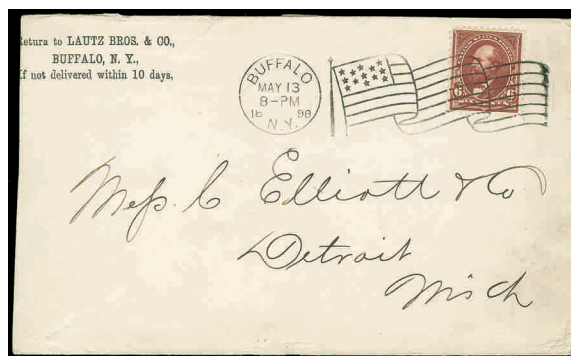 Return to LAUTZ BROS. & CO.,
BUFFALO, N. Y.,
If not delivered within 10 days.
BUFFALO
MAY 13
8-PM
16 98
N.Y.
6 6
Mess. C Elliott & Co
Detroit
Mich